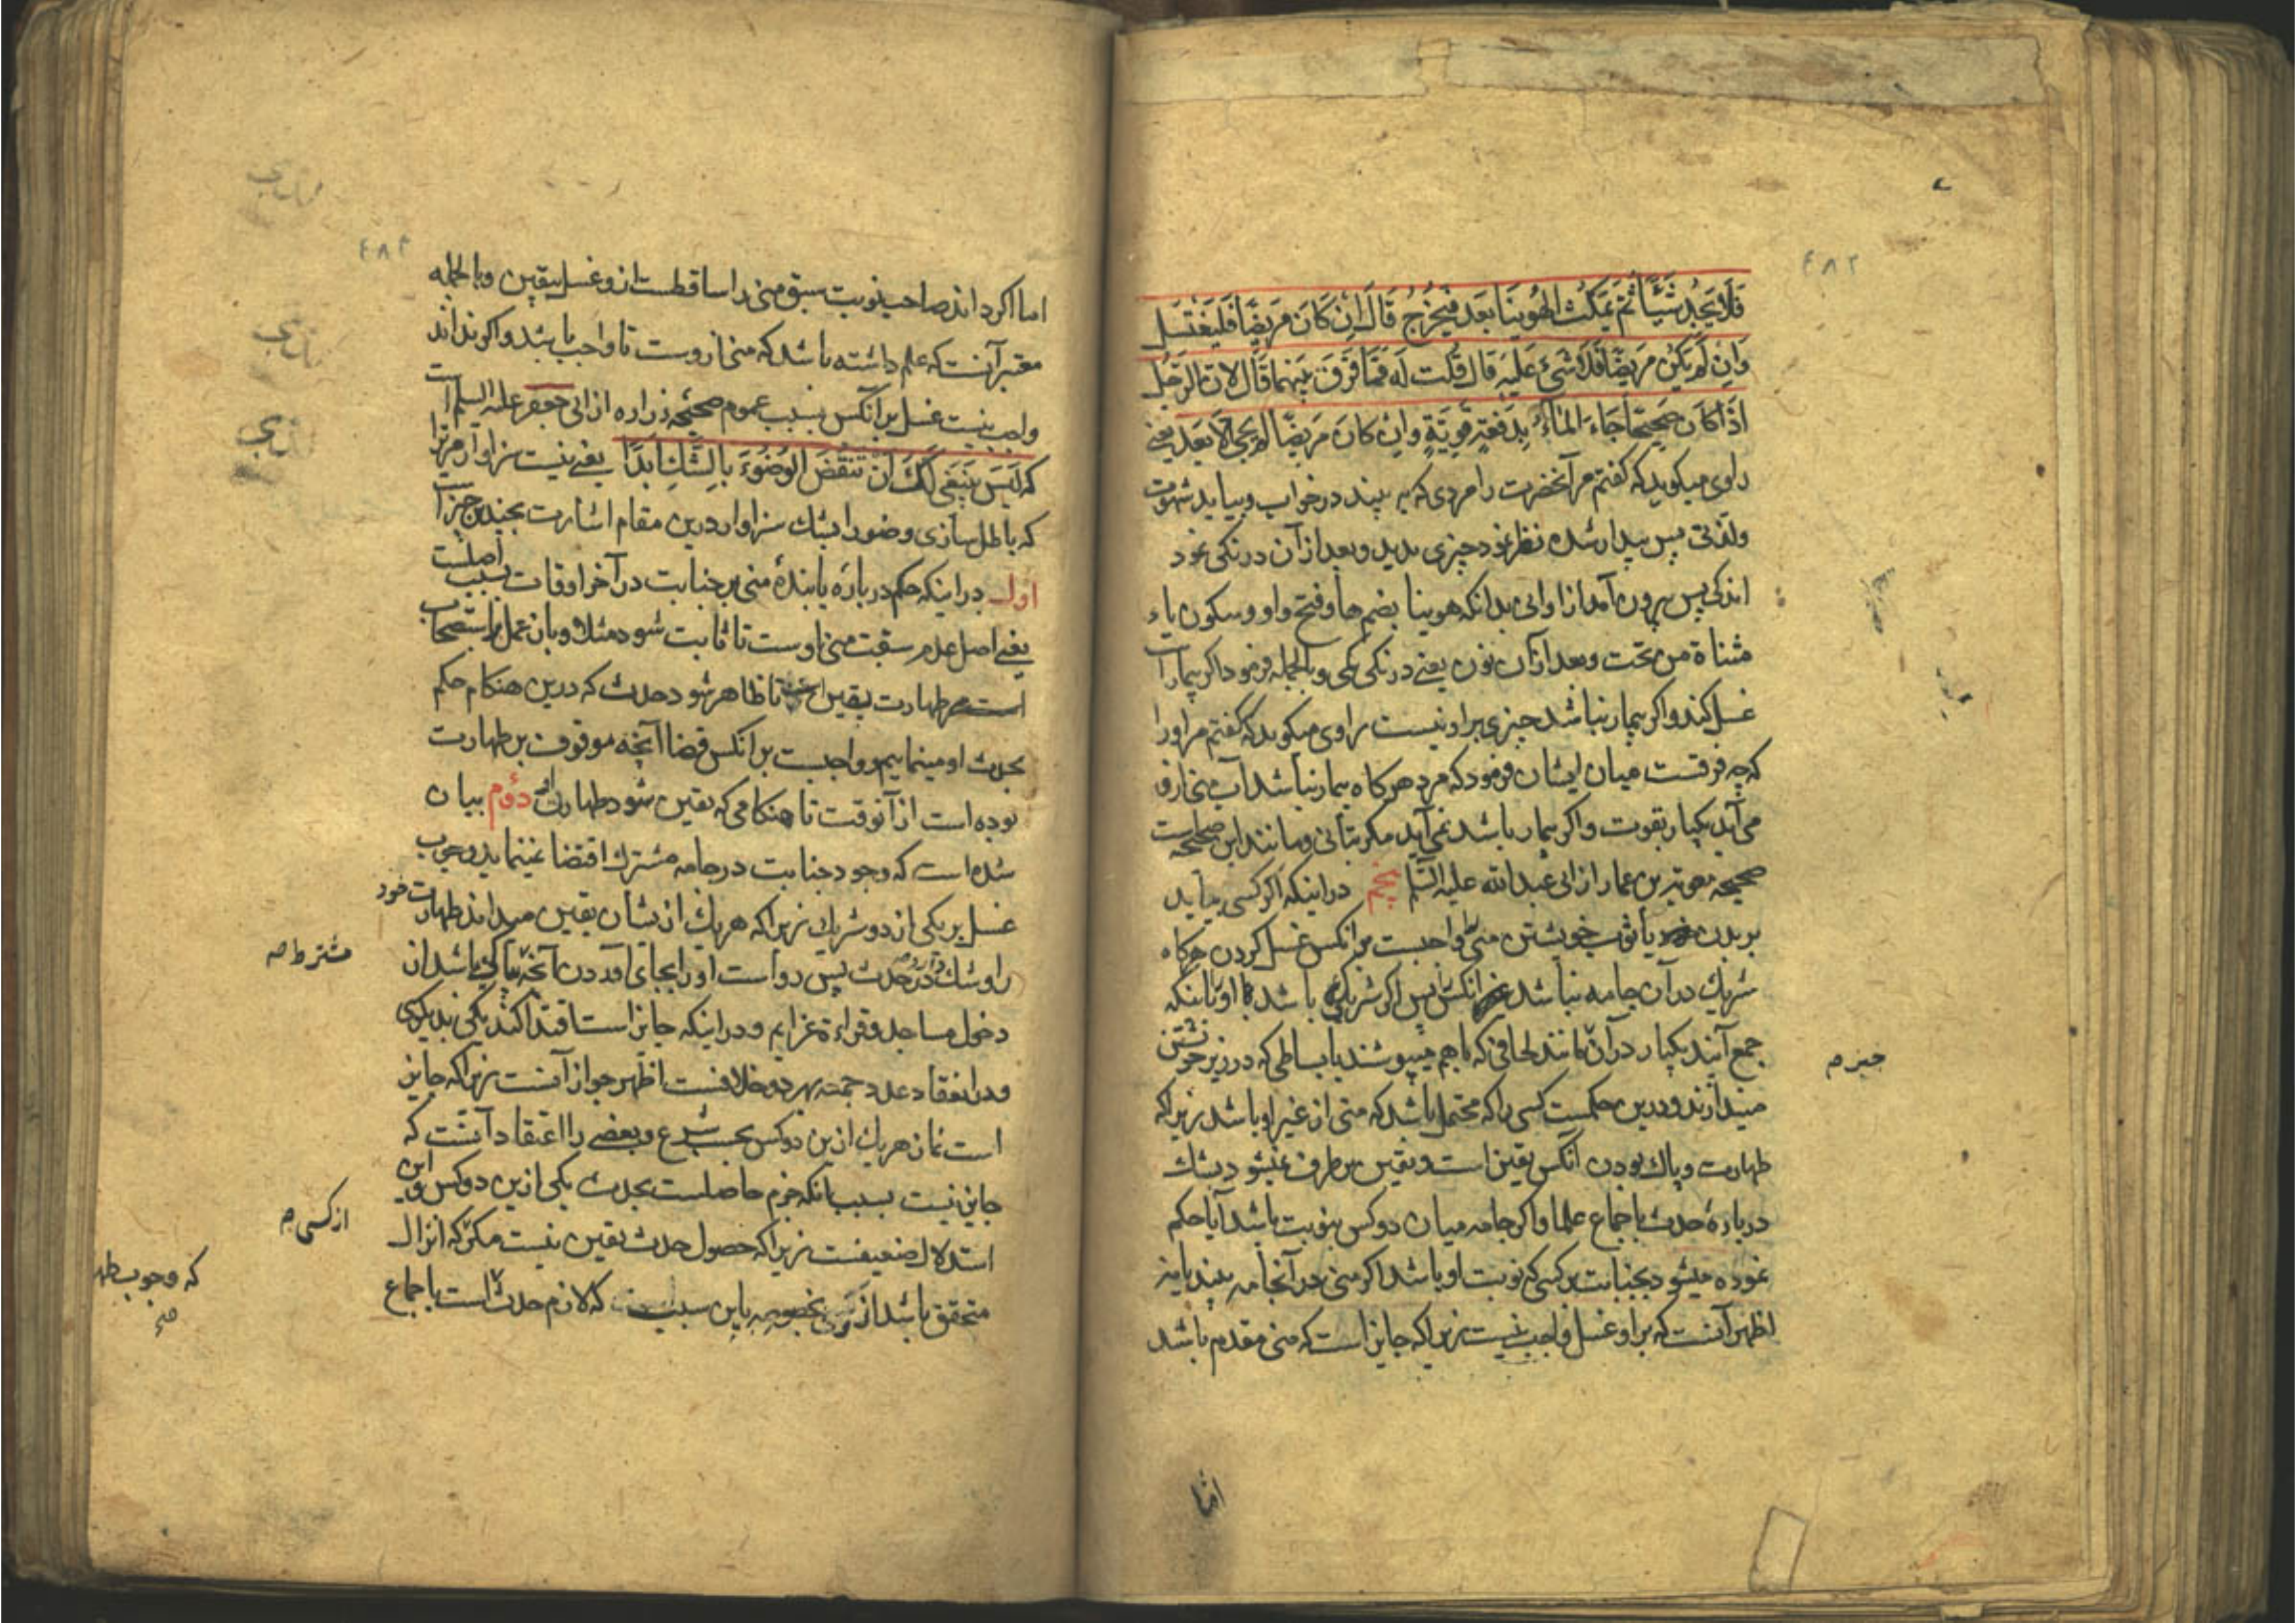 ۴۸۲
فَلَا یَجِدُ شَیْئًا ثُمَّ یَمْکُثُ الْهُوَیْنَا بَعْدُ فَیَخْرُجُ قَالَ اِنْ کَانَ مَرِیضًا فَلْیَغْتَسِلْ
وَاِنْ لَمْ یَکُنْ مَرِیضًا فَلَا شَیْءَ عَلَیْهِ قَالَ قُلْتُ لَهُ فَمَا فَرْقٌ بَیْنَهُمَا قَالَ لِاَنَّ الرَّجُلَ
اِذَا کَانَ صَحِیحًا جَاءَ الْمَاءُ بِدَفْعَةٍ قَوِیَّةٍ وَاِنْ کَانَ مَرِیضًا لَمْ یَجِئْ اِلَّا بَعْدُ یعنی
راوی میکوید که کفتم مر آنحضرت را مردی که به بیند در خواب و بیابد شهوت
ولذتی پس بیدار شده نظر نمود چیزی ندید و بعد از آن درنکی نمود
اندکی پس بیرون آمد از او انی بدانکه هوینا بضم ها و فتح واو و سکون یاء
مثناة من تحت و بعد از آن نون یعنی درنکی یکی و بالجمله فرمود اکر بیمار است
غسل کند و اکر بیمار نباشد چیزی بر او نیست راوی میکوید که کفتم مر او را
که چه فرقست میان ایشان فرمود که مرد هرکاه بیمار نباشد آب
می آید یکبار بقوت و اکر بیمار باشد نمی آید مکر بتأنی و مانند این صحیحه است
صحیحه معویه بن عمار از ابی عبدالله علیه السلم پنجم در اینکه اکر کسی بیابد
بر بدن یا ثوب خویشتن منی واجبست بر آنکس غسل کردن هرکاه
شریک در آن جامه نباشد غیر آنکس پس اکر شریکی باشد با او یا اینکه
جمع آیند یکبار در آن مانند لحافی که با هم میپوشند یا بساطی که در زیر خویشتن
میندازند و درین حکمست کسی را که محتمل باشد که منی از غیر او باشد زیرا که
طهارت و پاک بودن آنکس یقین است و یقین بر طرف نمیشود بشک
در بارهٔ حدث باجماع علما و اکر جامه میان دو کس بنوبت باشد آیا حکم
نموده میشود بجنابت بر کسی که نوبت او باشد اکر منی در آنجامه بیند یا نه
اظهر آنست که بر او غسل واجب نیست زیرا که جایز است که منی مقدم باشد
اما
۴۸۳
اما اکر داند صاحب نوبت سبق منی را ساقطست ازو غسل بیقین و بالجمله
معتبر آنست که علم داشته باشد که منی ازوست تا واجب باشد و اکر نداند
واجب نیست غسل بر آنکس بسبب عموم صحیحه زراره از ابی جعفر علیه السلم است
که لَیْسَ یَنْبَغِی لَکَ اَنْ تَنْقُضَ الْوُضُوءَ بِالشَّکِّ اَبَدًا یعنی نیست سزاوار مر ترا
که باطل سازی وضو را بشک سزاوار درین مقام اشارت بچندین چیز است
اول در اینکه حکم در بارهٔ یابندهٔ منی بر جنابت در آخر اوقات بسبب اصلست
یعنی اصل عدم سبقت منی اوست تا ثابت شود مثلا و بآن عمل باستصحاب
است طهارت یقین تا ظاهر شود حدث که درین هنکام حکم
بحدث او مینماییم و واجبست بر آنکس قضا آنچه موقوف بر طهارت
بوده است از آنوقت تا هنکامی که یقین شود طهارت او دوم بیان
شده است که وجود جنابت در جامه مشترک اقتضا نمینماید وجوب
غسل بر یکی از دو شریک زیرا که هر یک از یشان یقین میداند طهارت خود
را و شک دارد در حدث پس رواست او را بجای آوردن آنچه باشد از
مشترط صه
دخول مساجد و قراءة عزایم و در اینکه جایز است اقتدا کند یکی بدیکری
و در انعقاد عدد جمعه بهر دو خلافست اظهر جواز آنست زیرا که جایز
است نماز هر یک ازین دو کس بحسب شرع و بعضی را اعتقاد آنست که
جایز نیست بسبب آنکه جزم حاصلست بحدث یکی ازین دو کس و این
استدلال ضعیفست زیرا که حصول حدث یقین نیست مکر که انزال
از کسی
متحقق باشد از بخصوصه باین سبب که لازم حدث است باجماع
که وجوب